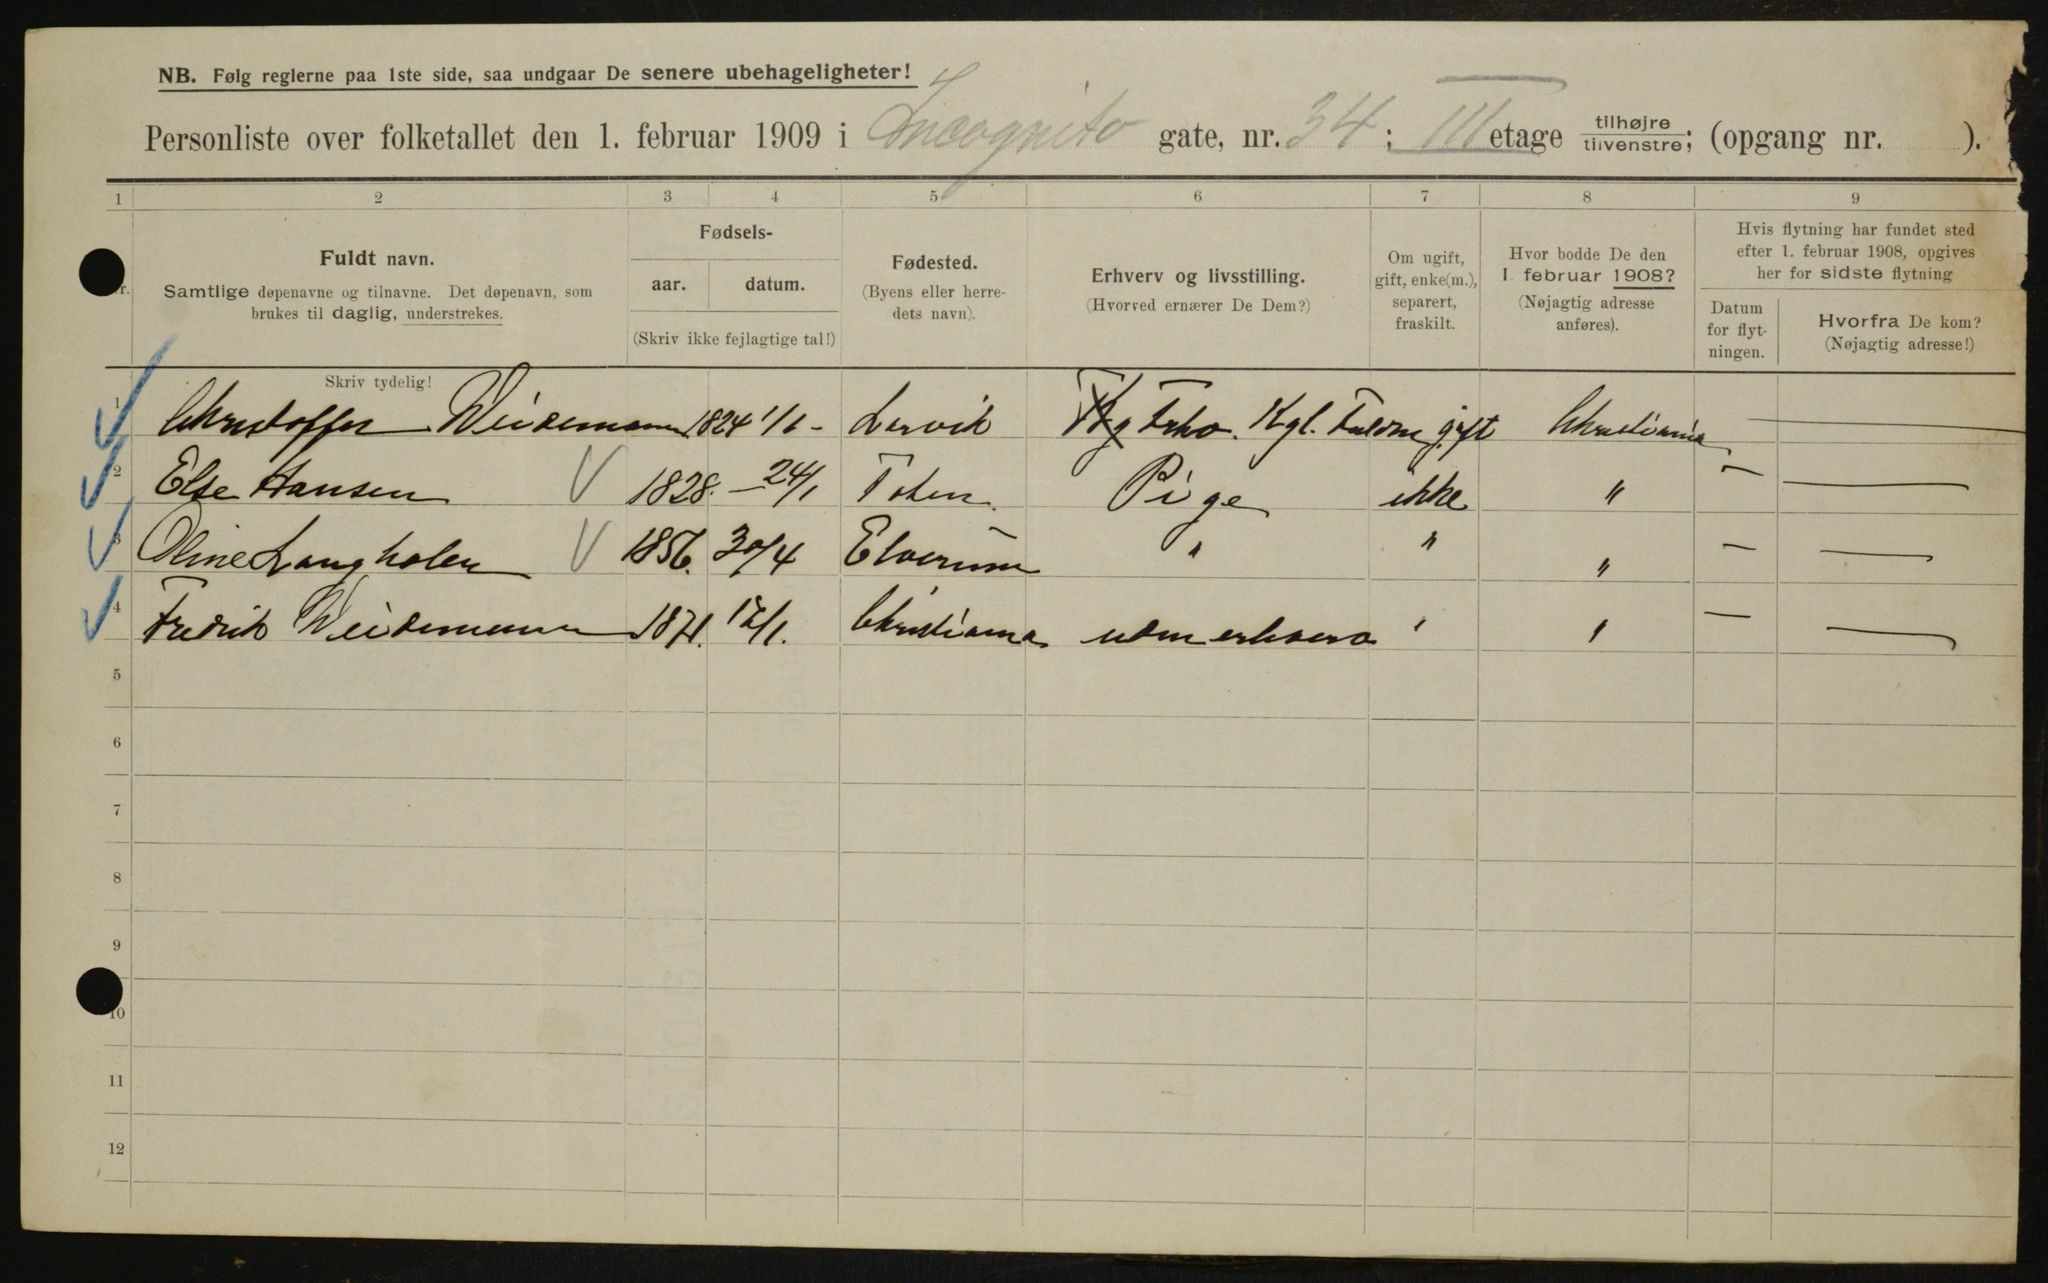 NB. Følg reglerne paa 1ste side, saa undgaar De senere ubehageligheter!
Personliste over folketallet den 1. februar 1909 i Incognito gate, nr. 34; III etage tilhøjre tilvenstre; (opgang nr. ).
1 2 3 4 5 6 7 8 9
Fuldt navn.
Samtlige døpenavne og tilnavne. Det døpenavn, som
brukes til daglig, understrekes.
Skriv tydelig!
Fødsels-
aar. datum.
(Skriv ikke fejlagtige tal!)
Fødested.
(Byens eller herre-
dets navn).
Erhverv og livsstilling.
(Hvorved ernærer De Dem?)
Om ugift,
gift, enke(m.),
separert,
fraskilt.
Hvor bodde De den
1. februar 1908?
(Nøjagtig adresse
anføres).
Hvis flytning har fundet sted
efter 1. februar 1908, opgives
her for sidste flytning
Datum
for flyt-
ningen.
Hvorfra De kom?
(Nøjagtig adresse!)
1 Christoffer Weidemann 1824 1/1 - Larvik Kgl. gift Christiania —
2 Else Hansen 1828. 24/1 Toten Pige ikke " — —
3 Oline Langholen 1856. 30/4 Elverum " " " — —
4 Fredrik Weidemann 1871. 12/1. Christiania uden erhverv " " — —
5
6
7
8
9
10
11
12